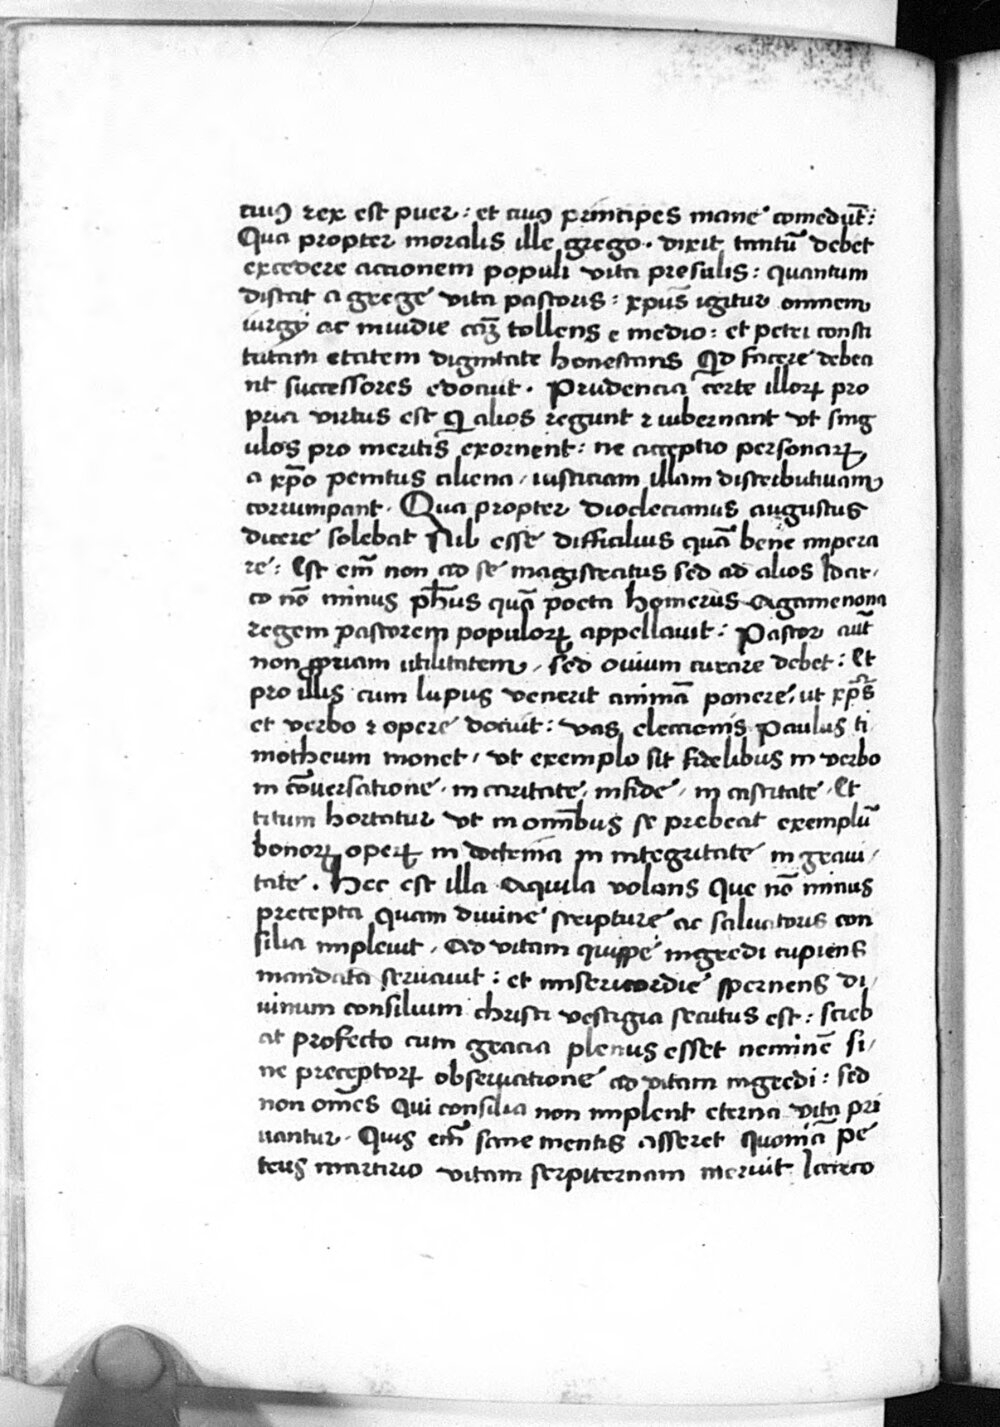 cuiꝰ rex est puer: et cuiꝰ principes mane comedūt:
Qua propter moralis ille grego. dixit tantū debet
excedere actionem populi vita presulis: quantum
distat a grege vita pastoris: xpūs igitur omnem
iurgij ac inuidie cām tollens e medio: et petri consti
tutam etatem dignitate honestans Qd facere debea
nt successores edocuit. Prudencia certe illorꝝ pro
pria virtus est q̇ alios regunt ⁊ iubernant vt sing
ulos pro meritis exornent: ne acceptio personarꝝ
a xp̄o penitus aliena, iusticiam illam distributiuam
corrumpant. Qua propter dioclecianus augustus
dicere solebat Nil esse difficilius quā bene impera
re: Est em̄ non ad se magistratus sed ad alios Idcir,
co nō minus ph̄us quā poeta homerus Agamenona
regem pastorem populorꝝ appellauit: Pastor aūt
non ꝓpriam utilitatem, sed ouium curare debet: Et
pro illis cum lupus venerit animā ponere, ut xp̄s
et verbo ⁊ opere docuit: vas electionis Paulus ti
motheum monet, vt exemplo sit fidelibus in verbo
in cōuersatione, in caritate, in fide, in castitate, Et
titum hortatur vt in omībus se prebeat exemplū
bonorꝝ operꝝ in doctrina in integritate in graui,
tate. Hec est illa Aquila volans que nō minus
precepta quam diuine scripture ac saluatoris con
silia impleuit, Ad vitam quippe ingredi cupiens
mandata seruauit: et misericordie spernens di,
uinum consilium christi vestigia secutus est: scieb
at profecto cum gracia plenus esset neminē si,
ne preceptorꝝ obseruatione ad vitam ingredi: sed
non om̄es qui consilia non implent eterna vita pri
uantur. Quis em̄ sane mentis asseret quoniā pe
teus martirio vitam serpiternam meruit Iccirco